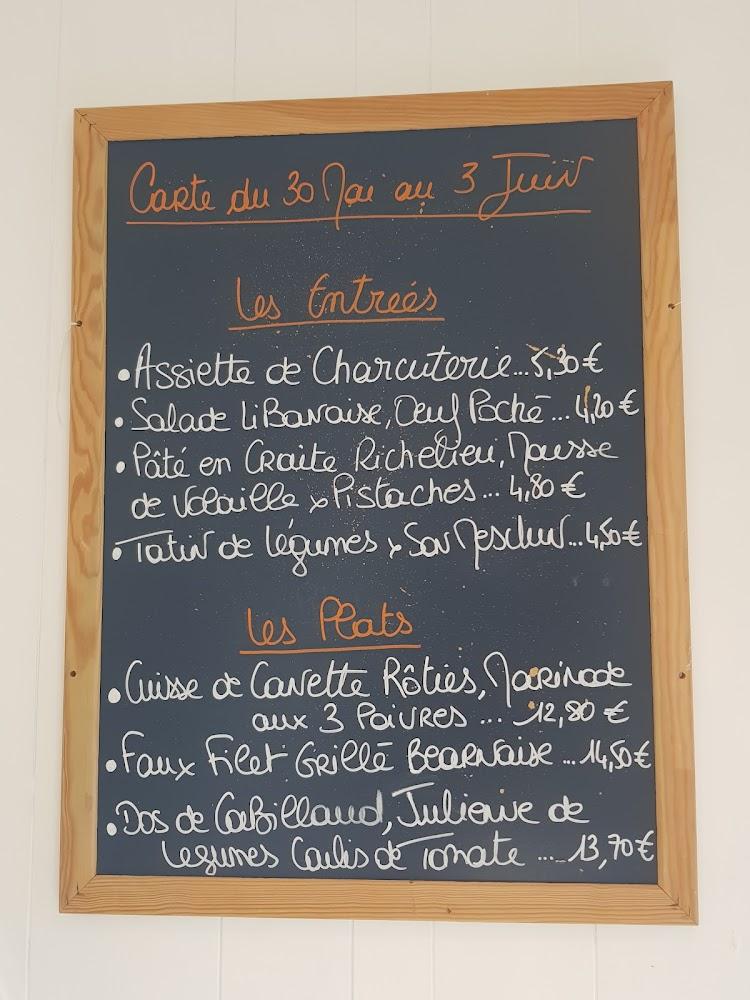 Carte du 30 Mai au 3 Juin
Les Entreés
• Assiette de Charcuterie...5,30 €
• Salade Libanaise, Oeuf Poché... 4,20 €
• Pâté en Croûte Richelieu, Mousse
de Volaille & Pistaches... 4,80 €
• Tatin de légumes & Son Mesclun...4,50 €
Les Plats
• Cuisse de Canette Rôties, Marinade
aux 3 Poivres ... 12,80 €
• Faux Filet Grillé Bearnaise ...14,50 €
• Dos de Cabillaud, Julienne de
Legumes Coulis de Tomate ... 13,70 €